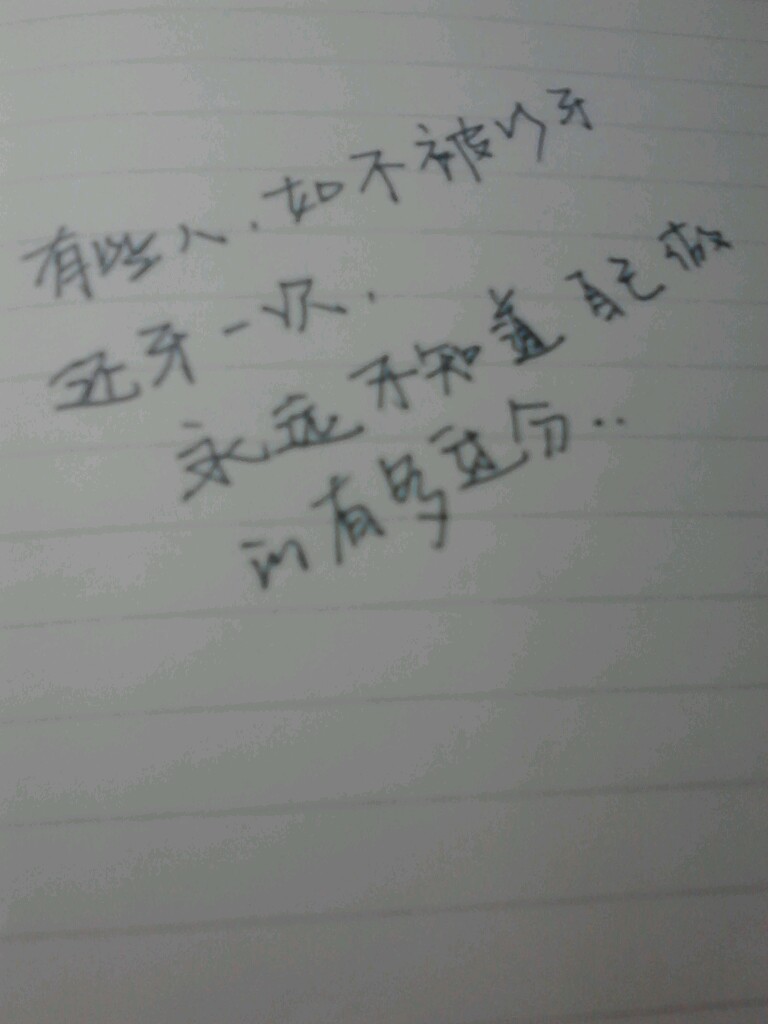 有些人.如不被以牙
还牙一次.
永远不知道自己做
的有多过分..